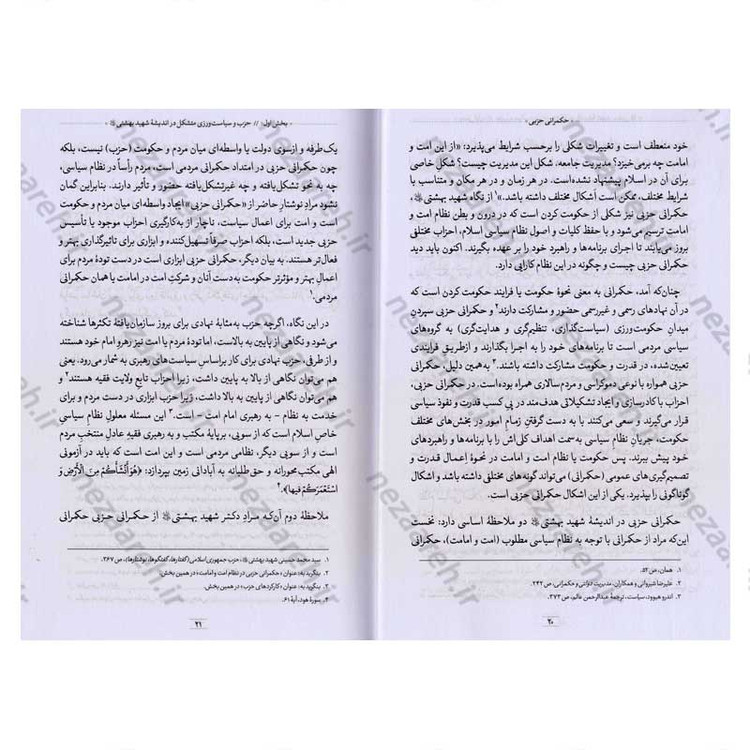 « حکمرانی حزبی »
خود منعطف است و تغییرات شکلی را برحسب شرایط می‌پذیرد: «از این امت و
امامت چه برمی‌خیزد؟ مدیریت جامعه. شکل این مدیریت چیست؟ شکل خاصی
برای آن در اسلام پیشنهاد نشده است. در هر زمان و در هر مکان و متناسب با
شرایط مختلف، ممکن است اَشکال مختلف داشته باشد.»۱ از نگاه شهید بهشتی،
حکمرانی حزبی نیز شکلی از حکومت کردن است که در درون و بطن نظام امت و
امامت ترسیم می‌شود و با حفظ کلیات و اصول نظام سیاسی اسلام، احزاب مختلفی
بروز می‌یابند تا اجرای برنامه‌ها و راهبرد خود را بر عهده بگیرند. اکنون باید دید
حکمرانی حزبی چیست و چگونه در این نظام کارایی دارد.
چنان‌که آمد، حکمرانی به معنی نحوهٔ حکومت یا فرایند حکومت کردن است که
در آن نهادهای رسمی و غیررسمی حضور و مشارکت دارند۲ و حکمرانی حزبی سپردنِ
میدانِ حکومت‌ورزی (سیاست‌گذاری، تنظیم‌گری و هدایت‌گری) به گروه‌های
سیاسی مردمی است تا برنامه‌های خود را به اجرا بگذارند و ازطریقِ فرایندی
تعیین‌شده، در قدرت و حکومت مشارکت داشته باشند.۳ به‌همین دلیل، حکمرانی
حزبی همواره با نوعی دموکراسی و مردم‌سالاری همراه بوده است. در حکمرانی حزبی،
احزاب با کادرسازی و ایجاد تشکیلاتی هدف‌مند در پیِ کسب قدرت و نفوذ سیاسی
قرار می‌گیرند و سعی می‌کنند با به دست گرفتنِ زمامِ امور در بخش‌های مختلف
حکومت، جریانِ نظامِ سیاسی به‌سمت اهداف کلی‌اش را با برنامه‌ها و راهبردهای
خود پیش ببرند. پس حکومت یا نظام امت و امامت در نحوهٔ اعمال قدرت و
تصمیم‌گیری‌های عمومی (حکمرانی) می‌تواند گونه‌های مختلفی داشته باشد و اشکال
گوناگونی را بپذیرد. یکی از این اشکال حکمرانی حزبی است.
حکمرانی حزبی در اندیشهٔ شهید بهشتی دو ملاحظهٔ اساسی دارد: نخست
این‌که مراد از حکمرانی با توجه به نظام سیاسی مطلوب (امت و امامت)، حکمرانی
۱. همان، ص ۵۲.
۲. علیرضا شیروانی و همکاران، مدیریت دولتی و حکمرانی، ص ۲۴۲
۳. اندرو هیوود، سیاست، ترجمهٔ عبدالرحمن عالم، ص ۳۷۳.
۲۰
« بخش اول: // حزب و سیاست‌ورزی متشکل در اندیشهٔ شهید بهشتی »
یک‌طرفه و ازسوی دولت یا واسطه‌ای میان مردم و حکومت (حزب) نیست، بلکه
چون حکمرانی حزبی در امتداد حکمرانی مردمی است، مردم رأساً در نظام سیاسی،
چه به نحو تشکل‌یافته و چه غیرتشکل‌یافته حضور و تأثیر دارند. بنابراین گمان
نشود مراد نوشتار حاضر از «حکمرانی حزبی» ایجاد واسطه‌ای میان مردم و حکومت
است و امت برای اعمال سیاست، ناچار از به‌کارگیری احزاب موجود یا تأسیس
حزبی جدید است، بلکه احزاب صرفاً تسهیل‌کننده و ابزاری برای تأثیرگذاری بهتر و
فعال‌تر هستند. به بیان دیگر، حکمرانی حزبی ابزاری است در دست تودهٔ مردم برای
اعمالِ بهتر و مؤثرترِ حکومت به‌دست آنان و شرکتِ امت در امامت یا همان حکمرانیِ
مردمی.۱
در این نگاه، اگرچه حزب به‌مثابهٔ نهادی برای بروز سازمان‌یافتهٔ تکثرها شناخته
می‌شود و نگاهی از پایین به بالاست، اما تودهٔ مردم یا امت نیز رهروِ امام خود هستند
و از طرفی، حزب نهادی برای کار براساسِ سیاست‌های رهبری به شمار می‌رود. یعنی
هم می‌توان نگاهی از بالا به پایین داشت، زیرا احزاب تابعِ ولایت فقیه هستند۲ و
هم می‌توان نگاهی از پایین به بالا داشت، زیرا حزب ابزاری در دست مردم و برای
خدمت به نظام - به رهبری امام امت - است.۳ این مسئله معلولِ نظامِ سیاسیِ
خاصِ اسلام است که از سویی، برپایهٔ مکتب و به رهبری فقیهِ عادلِ منتخبِ مردم
است و از سویی دیگر، نظامی مردمی است و این امت است که باید در آزمونی
الهی مکتب‌محورانه و حق‌طلبانه به آبادانی زمین بپردازد: ﴿هُوَ أَنْشَأَكُمْ مِنَ الْأَرْضِ وَ
اسْتَعْمَرَكُمْ فِيهَا﴾.۴
ملاحظهٔ دوم آن‌که مرادِ دکتر شهید بهشتی از حکمرانی حزبی حکمرانی
۱. سید محمد حسینی شهید بهشتی، حزب جمهوری اسلامی (گفتارها، گفتگوها، نوشتارها)، ص ۳۶۷.
۲. بنگرید به عنوان «حکمرانی حزبی در نظام امت و امامت» در همین بخش.
۳. بنگرید به: عنوان «کارکردهای حزب» در همین بخش.
۴. سورهٔ هود، آیهٔ ۶۱.
۲۱
nezaareh.ir